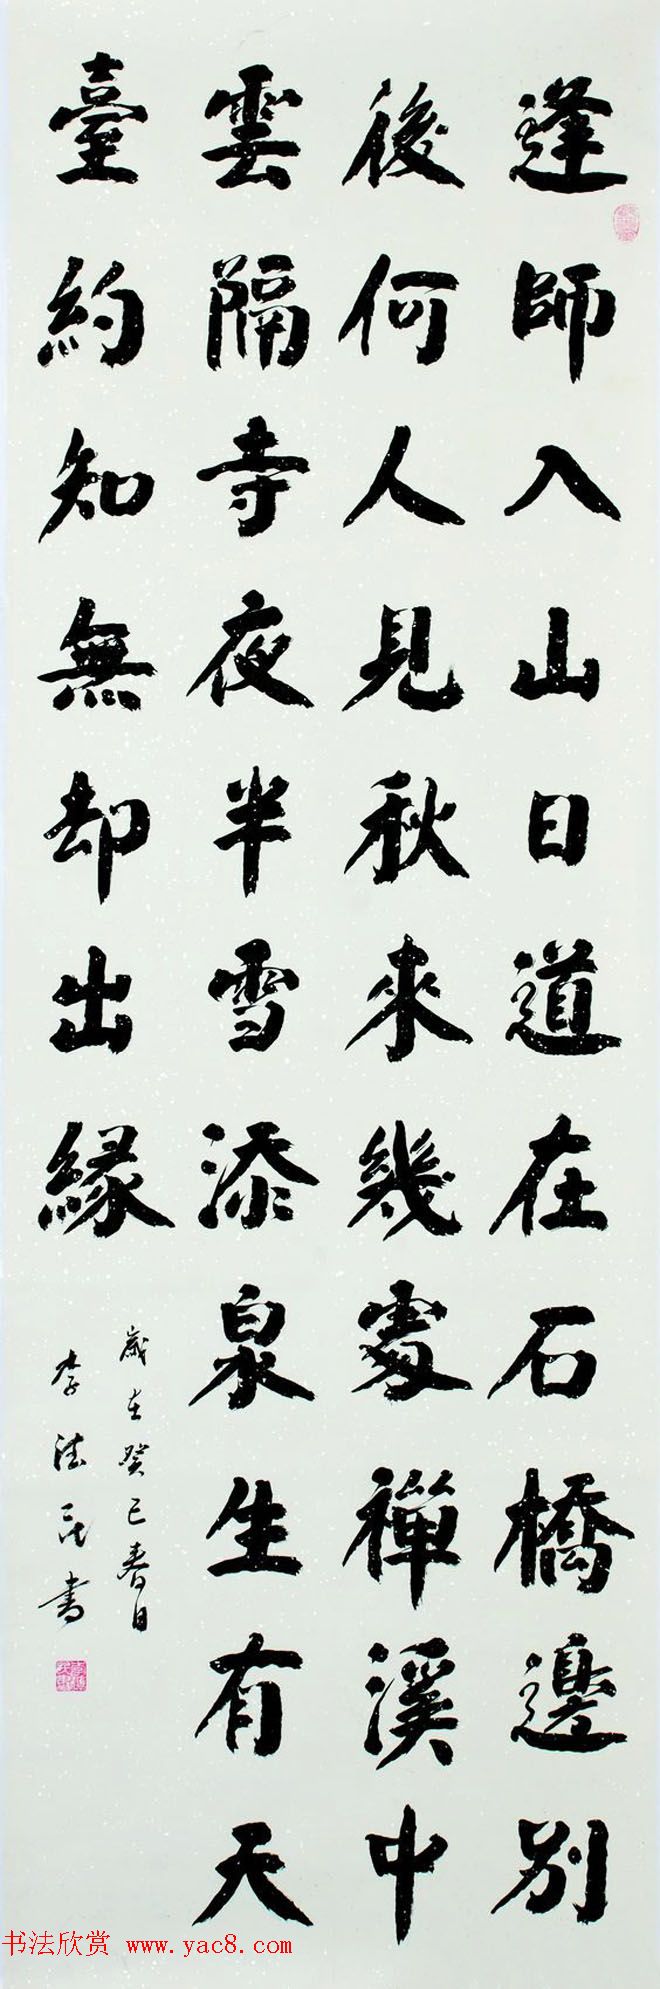 逢師入山日道在石橋邊別
後何人見秋來幾處禪溪中
雲隔寺夜半雪添泉生有天
臺約知無却出緣
歲在癸巳春日
李法民書
书法欣赏 www.yac8.com